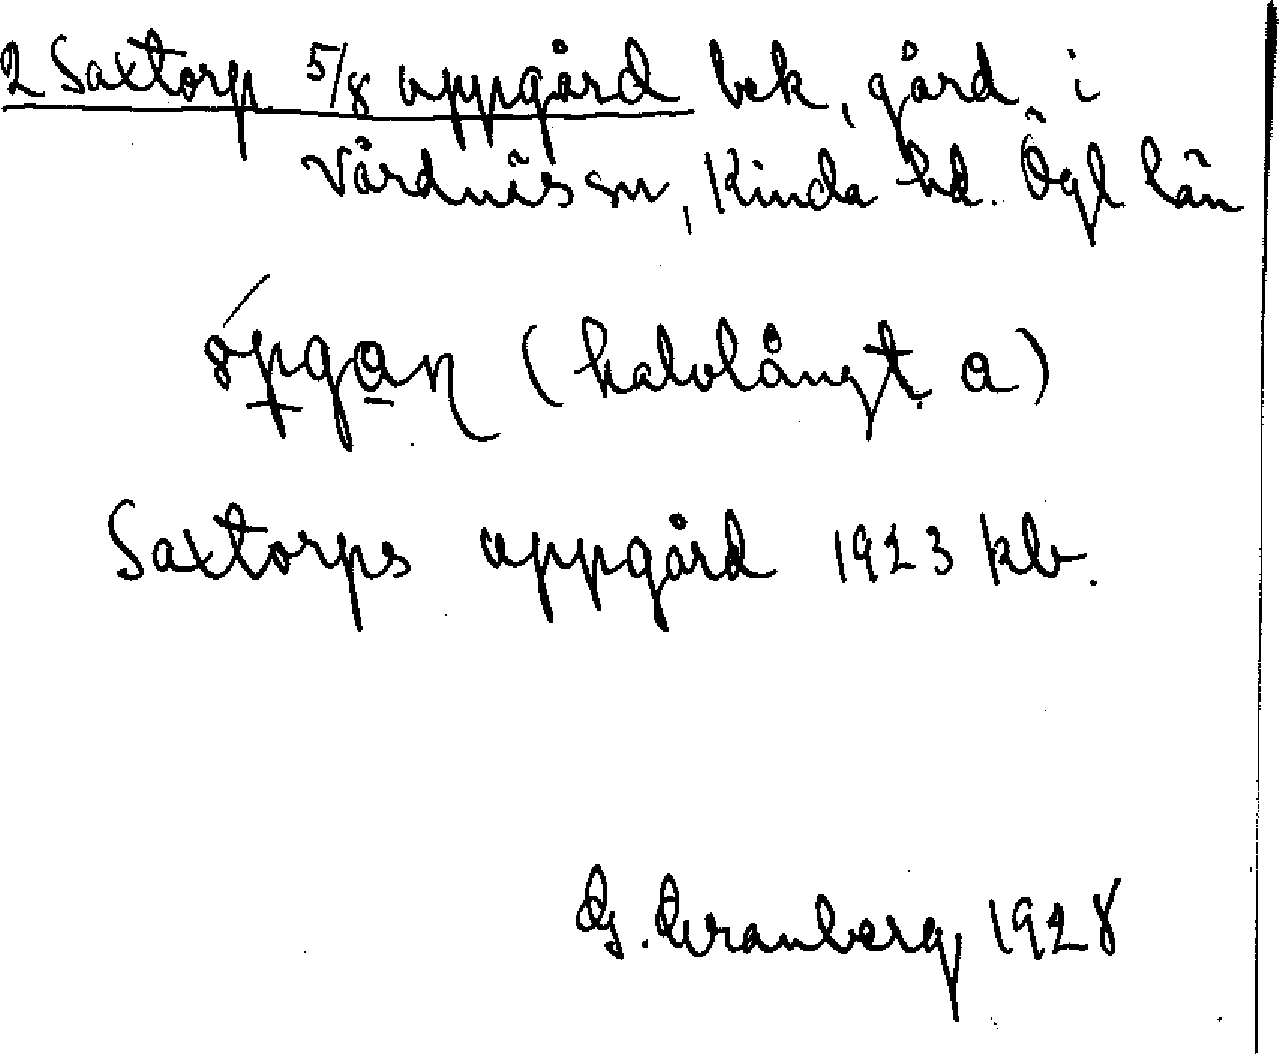 2 Saxtorp 5/8 uppgård bek, gård, i
Vårdnäs sn, Kinda hd. Ögl län
ópgan (halvlångt a)
Saxtorps uppgård 1923 kb.
G. Granberg 1928